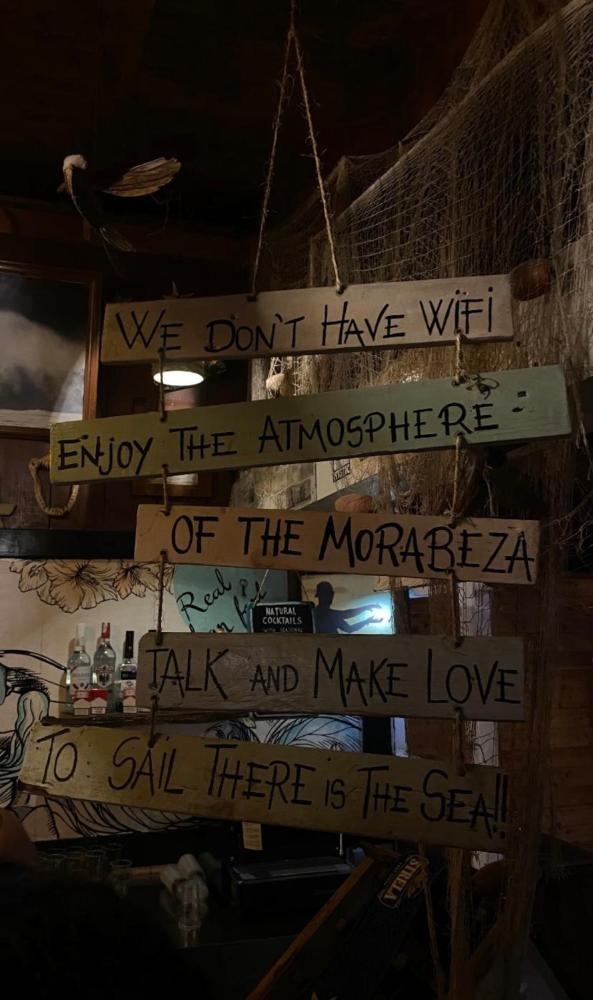 WE DON'T HAVE WIFI
ENJOY THE ATMOSPHERE
OF THE MORABEZA
TALK AND MAKE LOVE
TO SAIL THERE IS THE SEA!!
Real
NATURAL
COCKTAILS